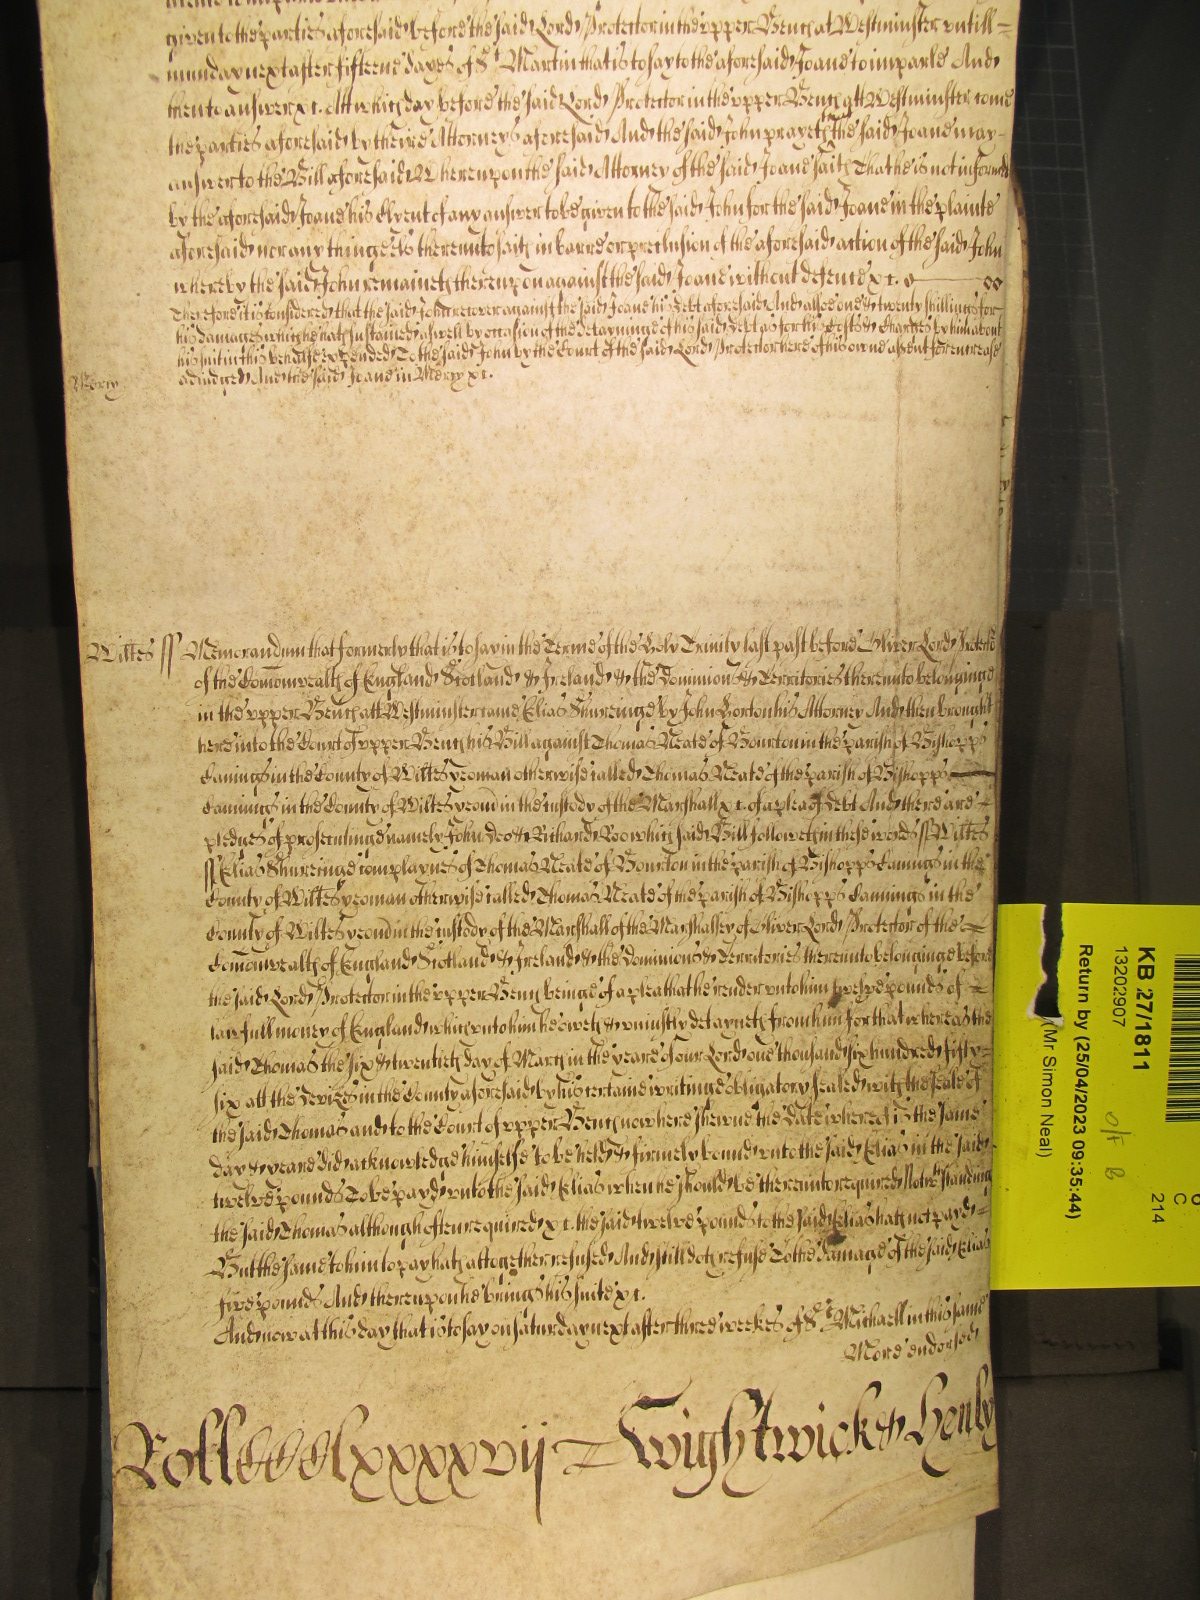 given to the parties aforesaid before the said Lord Protector in the upper Bench at Westminster untill
munday next after fifteene dayes of St Martin that is to say to the aforesaid Joane to imparle And
then to answer &c. Att which day before the said Lord Protector in the upper Bench att Westminster come
the parties aforesaid by theire Attorneys aforesaid And the said John prayeth that the said Joane may
answer to the Bill aforesaid Whereupon the said Attorney of the said Joane saith That he is not informed
by the aforesaid Joane his Clyent of any answer to be given to the said John for the said Joane in the plainte
aforesaid nor any thinge Els thereunto saith in barre or preclusion of the aforesaid action of the said John
whereby the said John remaineth thereupon against the said Joane without defence &c.
Therefore it is considered that the said John recover against the said Joane his debt aforesaid And alsoe one & twenty shillings for
his damages which he hath sustained aswell by occasion of the detayninge of his said debt as for his Costs & Charges by him about
his suit in this behalfe expended To the said John by the Court of the said Lord Protector here of his owne assent for encrease
Mercy adiudged And the said Joane in Mercy &c.
Wiltes ss Memorandum that formerly that is to say in the Terme of the Holy Trinity last past before Oliver Lord Protector
of the Comonwealth of England Scotland & Ireland & the Dominions & Territories thereunto belonginge
in the upper Bench att Westminster came Elias Shureinge by John Gorton his Attorney And then brought
here into the Court of upper Bench his Bill against Thomas Neate of Bourton in the parish of Bishopps
Canings in the County of Wiltes yeoman otherwise called Thomas Neate of the parish of Bishopps
Cannings in the County of Wiltes yeom in the custody of the Marshall &c. of a plea of Debt And there are
pledges of prosecutinge namely John Doe & Richard Roo which said Bill followeth in these words ss Wiltes
ss Elias Shureinge complaynes of Thomas Neate of Bourton in the parish of Bishopps Canings in the
County of Wiltes yeoman otherwise called Thomas Neate of the parish of Bishopps Cannings in the
County of Wiltes yeom in the custody of the Marshall of the Marshalsey of Oliver Lord Protector of the
Comonwealth of England Scotland & Ireland & the Dominions & Territories thereunto belonginge before
the said Lord Protector in the upper Bench beinge of a plea that he render unto him twelve pounds of
lawfull money of England which unto him he oweth & uniustly detayneth from him for that whereas the
said Thomas the six & twentieth day of March in the yeare of our Lord one thousand six hundred fifty
six att the Devizes in the County aforesaid by his certaine writinge obligatory sealed with the seale of
the said Thomas and to the Court of upper Bench now here shewne the date whereof is the same
day & yeare did acknowledge himselfe to be held & firmely bound unto the said Elias in the said
twelve pounds To be payd unto the said Elias when he should be thereunto required Notwithstanding
the said Thomas although often required &c. the said twelve pounds to the said Elias hath not payd
But the same to him to pay hath altogether refused And still doth refuse To the damage of the said Elias
five pounds And thereupon he brings his suite &c.
And now at this day that is to say on Saturday next after three weekes of St Michaell in this same
More endorsed
Roll CCClxxxxvij Wightwicke & Henly
KB 27/1811
13202907
Return by (25/04/2023 09:35:44)
(Mr Simon Neal)
O/F B
C
214